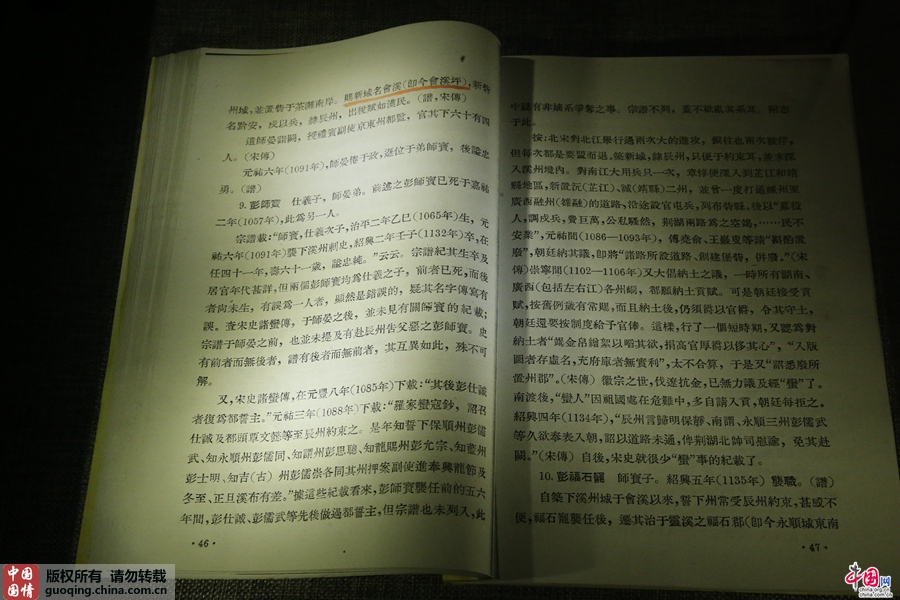 州城，並置砦于茶灘南岸。賜新城名會溪（卽今會溪坪），新砦
名黔安，戍以兵，隸辰州，出役賦如漢民。（譜，宋傳）
遣師晏詣闕，授禮賓副使京東州都監，官其下六十有四
人。（宋傳）
元祐六年（1091年），師晏倦于政，遜位于弟師寶，後諡忠
勇。（譜）
9. 彭師寶 仕羲子，師晏弟。前述之彭師寶已死于嘉祐
二年（1057年），此爲另一人。
宗譜載：“師寶，仕羲次子，治平二年乙巳（1065年）生，元
祐六年（1091年）襲下溪州刺史，紹興二年壬子（1132年）卒，在
任四十一年，壽六十一歲，諡忠純。”云云。宗譜紀其生卒及
居官年代甚詳，但兩個彭師寶均爲仕羲之子，前者已死，而後
者尙未生，有誤爲一人者，顯然是錯誤的，疑其名字傳寫有
誤。查宋史諸蠻傳，于師晏之後，並未見有關師寶的紀載；
宗譜于師晏之前，也並未提及有赴辰州告父惡之彭師寶。史
有前者而無後者，譜有後者而無前者，其互異如此，殊不可
解。
又，宋史諸蠻傳，在元豐八年（1085年）下載：“其後彭仕誠
者復爲都誓主。”元祐三年（1088年）下載：“羅家蠻寇鈔，詔召
仕誠及都頭覃文懿等至辰州約束之。是年知誓下保順州彭儒
武、知永順州彭儒同、知謂州彭思聰、知龍賜州彭允宗、知藍州
彭士明、知吉（古）州彭儒崇各同其州押案副使進奉興龍節及
冬至、正旦溪布有差。”據這些紀載看來，彭師寶襲任前的五六
年間，彭仕誠、彭儒武等先後做過都誓主，但宗譜也未列入，此
·46·
于此。
按：北宋對北江舉行過兩次大的進攻，
但每次都是要盟而退。築新城，隸辰州，只便于約束耳，並未深
入溪州境內。對南江大用兵只一次，章惇便深入到芷江和靖
縣地區，新置沅（芷江）、誠（靖縣）二州，並曾一度打通
廣西融州（融縣）的道路，沿途設官屯兵，列布砦縣，後以“募役
人，調戍兵，費巨萬，公私騷然，荆湖兩路爲之空竭，……民不
安業”，元祐間（1086—1093年），傅堯俞、王巖叟等請
廢”，朝廷納其議，卽將“諸路所設道路、創建堡砦，併廢。”（宋
傳）崇寧間（1102—1106年）又大倡納土之議，一時所有湖南、
廣西（包括左右江）各州峒，都願納土貢賦。可是朝廷接受貢
賦，按舊例歲有常賜，而且納土後，仍須爵以官爵，令其守土，
朝廷還要按制度給予官俸。這樣，行了一個短時期，又認爲對
納土者“捐金帛繒絮以啗其欲，捐高官厚爵以侈其心”，“入版
圖者存虛名，充府庫者無實利”，太不合算，于是又“詔悉廢所
置州郡”。（宋傳）徽宗之世，伐遼抗金，已無力議及經“蠻”了。
南渡後，“蠻人”因祖國處在危難中，多自請入貢，朝廷每拒之。
紹興四年（1134年），“辰州言歸明保靜、南謂、永順三州彭儒武
等久欲奉表入朝，詔以道路未通，俾荆湖北帥司慰諭，免其赴
闕。”（宋傳）自後，宋史就很少“蠻”事的紀載了。
10. 彭福石寵 師寶子。紹興五年（1135年）襲職。（譜）
自築下溪州城于會溪以來，誓下州常受辰州約束，甚感不
便，福石寵襲任後，遷其治于靈溪之福石郡（卽今永順城東南
·47·
中国国情
版权所有 请勿转载
guoqing.china.com.cn
中国网
china.org.cn
www.china.com.cn